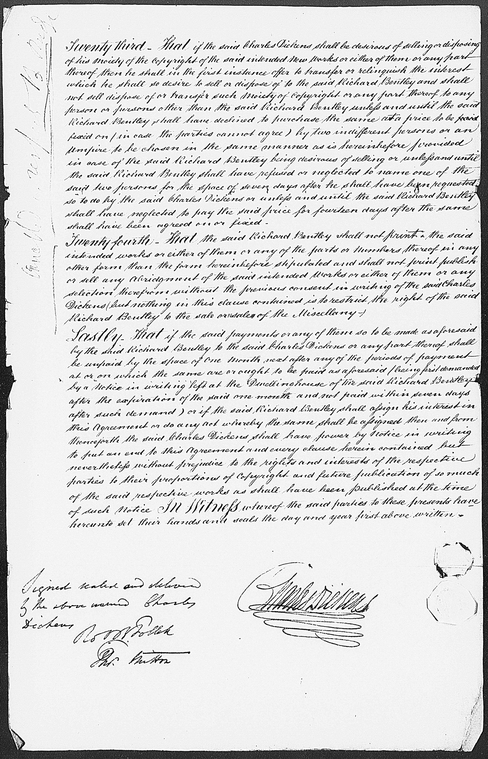 Twenty third – That if the said Charles Dickens shall be desirous of selling or disposing
of his Moiety of the Copyright of the said intended New Works or either of them or any part
thereof then he shall in the first instance offer to transfer or relinquish the interest
which he shall so desire to sell or dispose of to the said Richard Bentley and shall
not sell dispose of or transfer such Moiety of Copyright or any part thereof to any
person or persons other than the said Richard Bentley unless and until the said
Richard Bentley shall have declined to purchase the same at a price to be paid
fixed on (in case the parties cannot agree) by two indifferent persons or an
Umpire to be chosen in the same manner as is hereinbefore provided
in case of the said Richard Bentley being desirous of selling or unless and until
the said Richard Bentley shall have refused or neglected to name one of the
said two persons for the space of seven days after he shall have been requested
so to do by the said Charles Dickens or unless and until the said Richard Bentley
shall have neglected to pay the said price for fourteen days after the same
shall have been agreed on or fixed
Twenty fourth – That the said Richard Bentley shall not print the said
intended works or either of them or any of the parts or Numbers thereof in any
other form than the form hereinbefore stipulated and shall not print publish
or sell any Abridgment of the said intended Works or either of them or any
selection therefrom without the previous consent in writing of the said Charles
Dickens (but nothing in this clause contained is to restrict the right of the said
Richard Bentley to the sale or resales of the Miscellany –)
Lastly – That if the said payments or any of them so to be made as aforesaid
by the said Richard Bentley to the said Charles Dickens or any part thereof shall
be unpaid by the space of One Month next after any of the periods of payment
at or on which the same are or ought to be paid as aforesaid (being first demanded
by a Notice in writing left at the Dwellinghouse of the said Richard Bentley
after the expiration of the said one month and not paid within seven days
after such demand) or if the said Richard Bentley shall assign his interest in
this Agreement or do any act whereby the same shall be assigned then and from
thenceforth the said Charles Dickens shall have power by Notice in writing
to put an end to this Agreement and every clause herein contained but
nevertheless without prejudice to the rights and interests of the respective
parties to their proportions of Copyright and future publication of so much
of the said respective works as shall have been published at the time
of such Notice In Witness whereof the said parties to these presents have
hereunto set their hands and seals the day and year first above written –
Signed sealed and delivered
by the above named Charles
Dickens
Charles Dickens